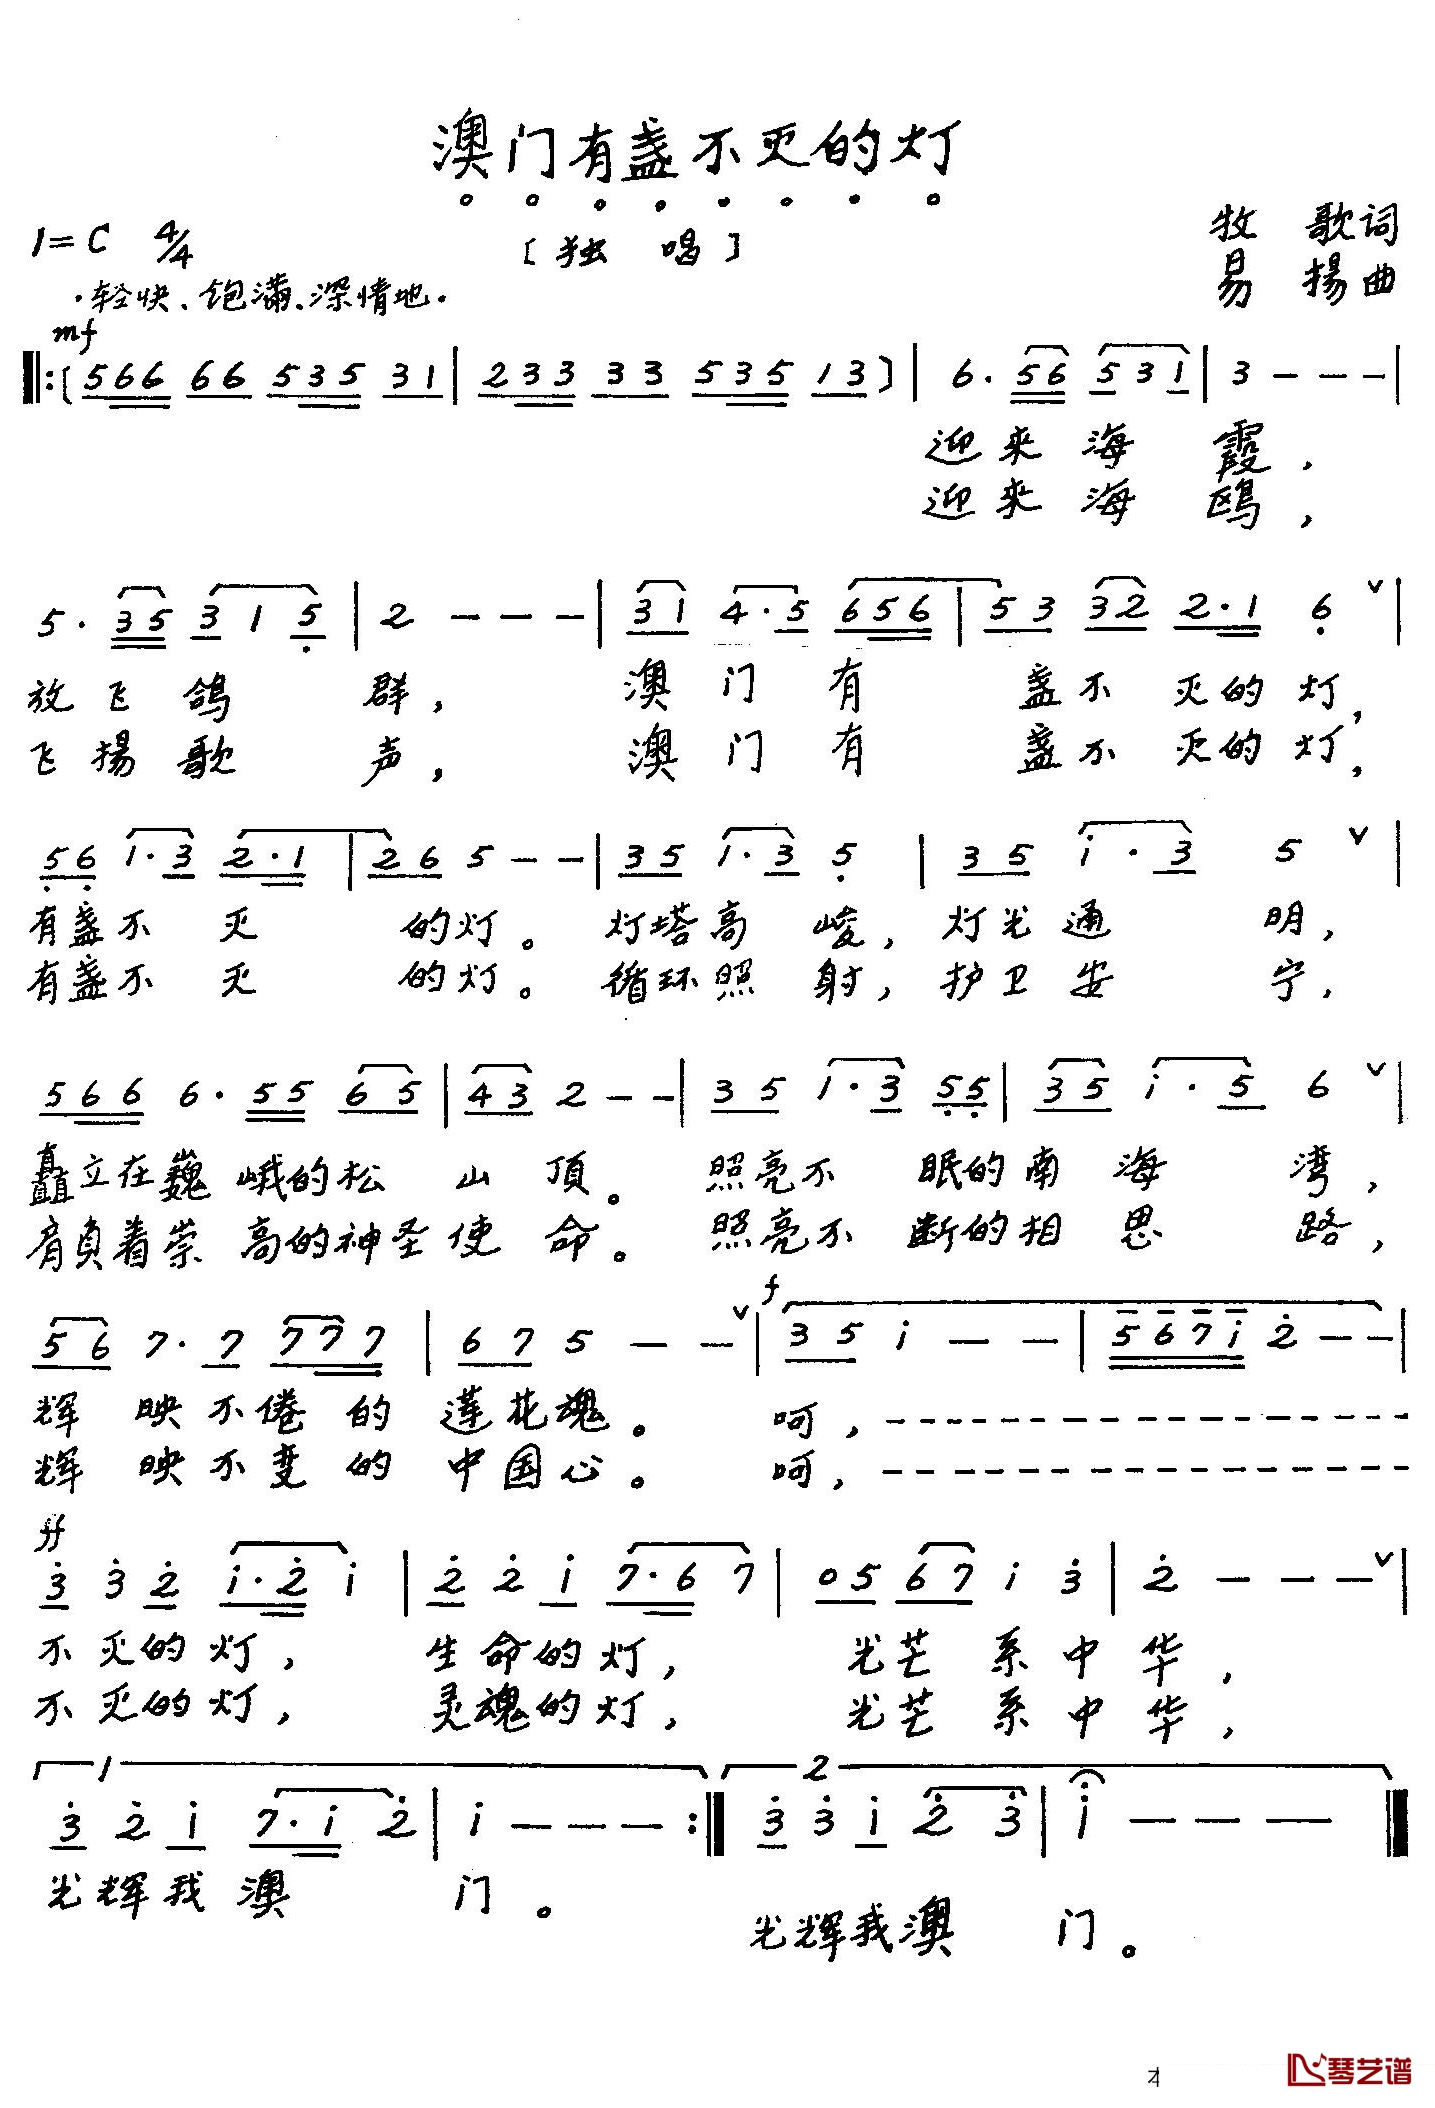 澳门有盏不灭的灯
1=C 4/4
[独 唱]
牧 歌词
易 揚曲
·轻快、饱满、深情地·
mf
‖:(566 66 535 31 | 233 33 535 13) | 6· 56 531 | 3 - - - |
迎来海霞，
迎来海鸥，
5· 35 3 1 5 | 2 - - - | 31 4·5 656 | 53 32 2·1 6 ∨ |
放飞鸽群，澳门有盏不灭的灯，
飞揚歌声，澳门有盏不灭的灯，
56 1·3 2·1 | 26 5 - - | 35 1·3 5 | 35 i·3 5 ∨ |
有盏不灭的灯。灯塔高峻，灯光通明，
有盏不灭的灯。循环照射，护卫安宁，
566 6·55 65 | 43 2 - - | 35 1·3 55 | 35 i·5 6 ∨ |
矗立在巍峨的松山顶。照亮不眠的南海湾，
肩负着崇高的神圣使命。照亮不断的相思路，
f
56 7·7 777 | 67 5 - - ∨ | 35 i - - | 567i 2 - - |
辉映不倦的莲花魂。呵，------------
辉映不变的中国心。呵，------------
ff
3 3 2 i·2 i | 2 2 i 7·6 7 | 05 67 i 3 | 2 - - - ∨ |
不灭的灯，生命的灯，光芒系中华，
不灭的灯，灵魂的灯，光芒系中华，
1 2
3 2 i 7·i 2 | i - - - :‖ 3 3 i 2 3 | i - - - ‖
光辉我澳门。
光辉我澳门。
琴艺谱